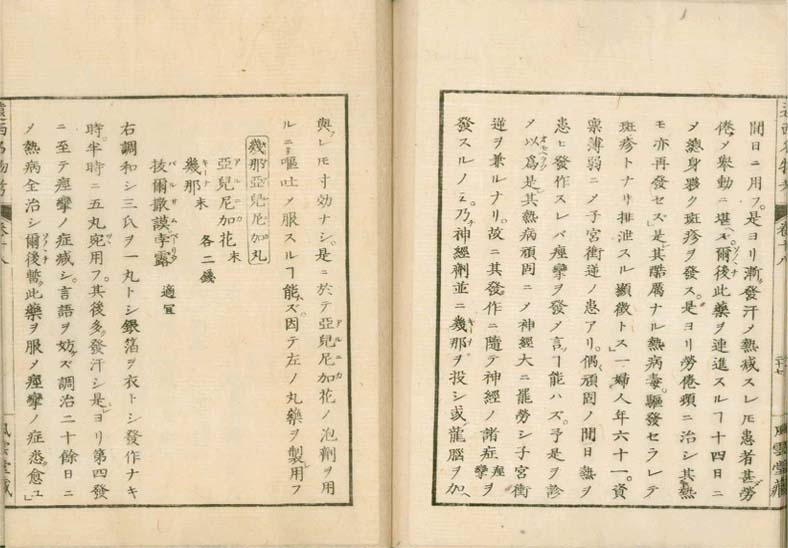 間日ニ用フ。是ヨリ漸ク發汗メ熱減スレモ患者甚勞
倦メ舉動ニ堪ヘズ。爾後此藥ヲ連進スルヿ十四日ニ
メ總身夥ク斑疹ヲ發ス。是ヨリ勞倦頓ニ治シ其熱
モ亦再發セズ」是其酷厲ナル熱病毒。驅發セラレテ
斑疹トナリ排泄スル顯徵トス」一婦人年六十一。資
稟薄弱ニメ子宮衝逆ノ患アリ。偶頑固ノ間日熱ヲ
患ヒ發作スレバ痙攣ヲ發メ言フヿ能ハズ。予是ヲ診
メ以爲ラク是其熱病頑固ニメ神經大ニ罷勞シ子宮衝
逆ヲ兼ルナリ。故ニ其發作ニ隨テ神經ノ諸症痙攣ヲ
發スルノミ。乃チ神經劑並ニ幾那ヲ投シ或ハ龍腦ヲ加ヘ
與レモ寸効ナシ。是ニ於テ亞兒尼加花ノ泡劑ヲ用
ルニ嘔吐メ服スルヿ能ハズ。因テ左ノ丸藥ヲ製メ用フ
幾那亞兒尼加丸
亞兒尼加花末
幾那末 各二錢
抜爾撒謨孛露 適宜
右調和シ三氏ヲ一丸トシ銀箔ヲ衣トシ發作ナキ
時。半時ニ五丸宛用フ。其後多ク發汗シ是ヨリ第四發
ニ至テ痙攣ノ症減シ。言語ヲ妨ゲズ調治二十餘日ニ
メ熱病全治シ爾後暫ク此藥ヲ服メ痙攣ノ症悉ク愈ユ」
遠西名物考
卷十八
風雲堂藏